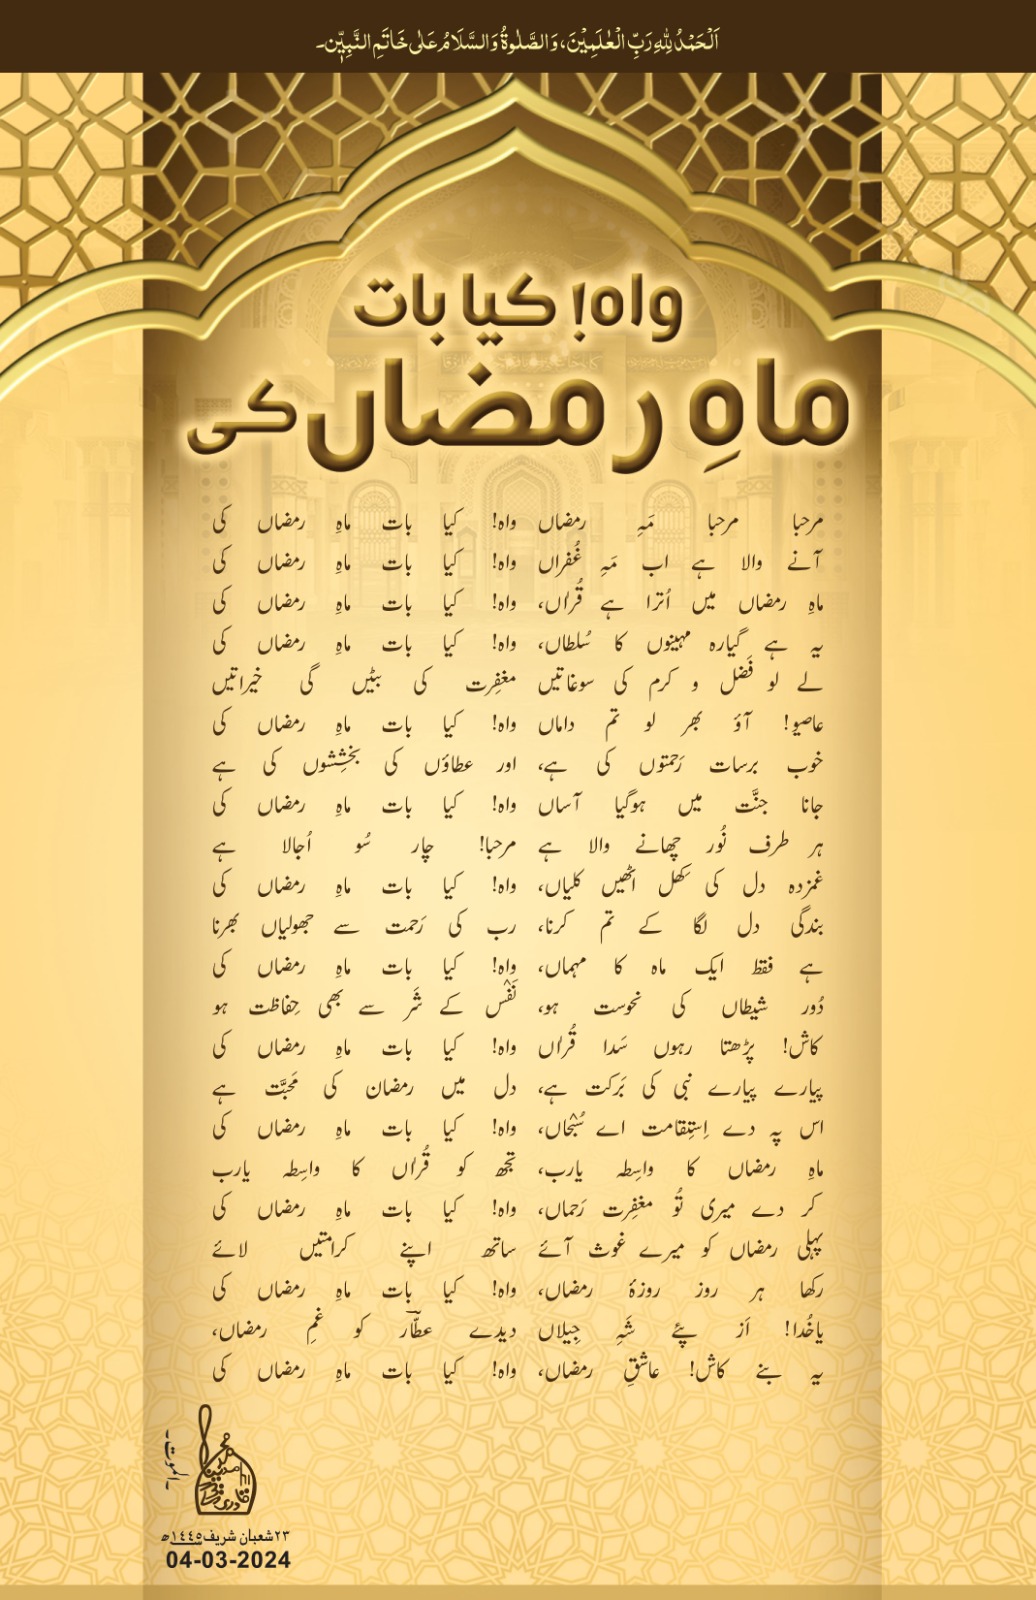 اَلْحَمْدُ لِلّٰہِ رَبِّ الْعٰلَمِیْنَ، وَالصَّلٰوۃُ وَالسَّلَامُ عَلٰی خَاتَمِ النَّبِیّٖن۔
واہ! کیا بات
ماہِ رمضاں کی
مرحبا مرحبا مَہِ رمضاں واہ! کیا بات ماہِ رمضاں کی
آنے والا ہے اب مَہِ غُفراں واہ! کیا بات ماہِ رمضاں کی
ماہِ رمضاں میں اُترا ہے قُراٰں، واہ! کیا بات ماہِ رمضاں کی
یہ ہے گیارہ مہینوں کا سُلطاں، واہ! کیا بات ماہِ رمضاں کی
لے لو فَضل و کرم کی سوغاتیں مغفِرت کی بٹیں گی خیراتیں
عاصیو! آؤ بھر لو تم داماں واہ! کیا بات ماہِ رمضاں کی
خوب برسات رَحمتوں کی ہے، اور عطاؤں کی بخشِشوں کی ہے
جانا جنَّت میں ہوگیا آساں واہ! کیا بات ماہِ رمضاں کی
ہر طرف نُور چھانے والا ہے مرحبا! چار سُو اُجالا ہے
غمزدہ دل کی کِھل اٹھیں کلیاں، واہ! کیا بات ماہِ رمضاں کی
بندگی دل لگا کے تم کرنا، رب کی رَحمت سے جھولیاں بھرنا
ہے فقط ایک ماہ کا مہماں، واہ! کیا بات ماہِ رمضاں کی
دُور شیطاں کی نحوست ہو، نَفْس کے شَر سے بھی حِفاظت ہو
کاش! پڑھتا رہوں سَدا قُراٰں واہ! کیا بات ماہِ رمضاں کی
پیارے پیارے نبی کی بَرکت ہے، دل میں رمضان کی مَحبَّت ہے
اس پہ دے اِستِقامت اے سُبْحاں، واہ! کیا بات ماہِ رمضاں کی
ماہِ رمضاں کا واسِطہ یارب، تجھ کو قُراٰں کا واسِطہ یارب
کر دے میری تُو مغفِرت رَحماں، واہ! کیا بات ماہِ رمضاں کی
پہلی رمضاں کو میرے غوث آئے ساتھ اپنے کرامتیں لائے
رکھا ہر روز روزۂ رمضاں، واہ! کیا بات ماہِ رمضاں کی
یاخُدا! اَز پئے شَہِ جِیلاں دیدے عطّاؔر کو غمِ رمضاں،
یہ بنے کاش! عاشقِ رمضاں، واہ! کیا بات ماہِ رمضاں کی
۔الموت۔
۲۳شعبان شریف۱٤٤٥ھ
04-03-2024